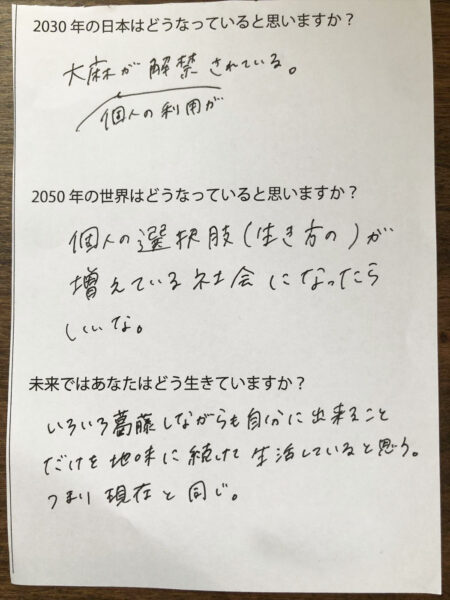 2030 年の日本はどうなっていると思いますか？
大麻が解禁されている。
個人の利用が
2050 年の世界はどうなっていると思いますか？
個人の選択肢(生き方の)が
増えている社会になったら
いいな。
未来ではあなたはどう生きていますか？
いろいろ葛藤しながらも自分に出来ること
だけを地味に続けて生活していると思う。
つまり現在と同じ。